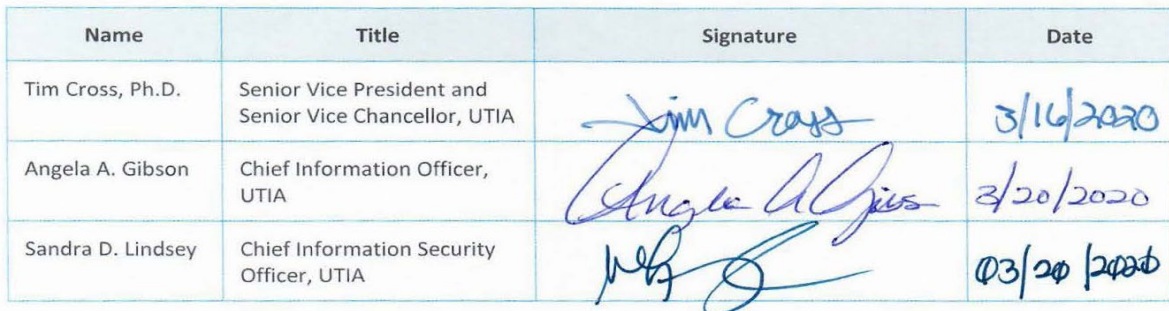 Name Title Signature Date
Tim Cross, Ph.D. Senior Vice President and
Senior Vice Chancellor, UTIA Tim Cross 3/16/2020
Angela A. Gibson Chief Information Officer,
UTIA Angela A 3/20/2020
Sandra D. Lindsey Chief Information Security
Officer, UTIA 03/20/2020